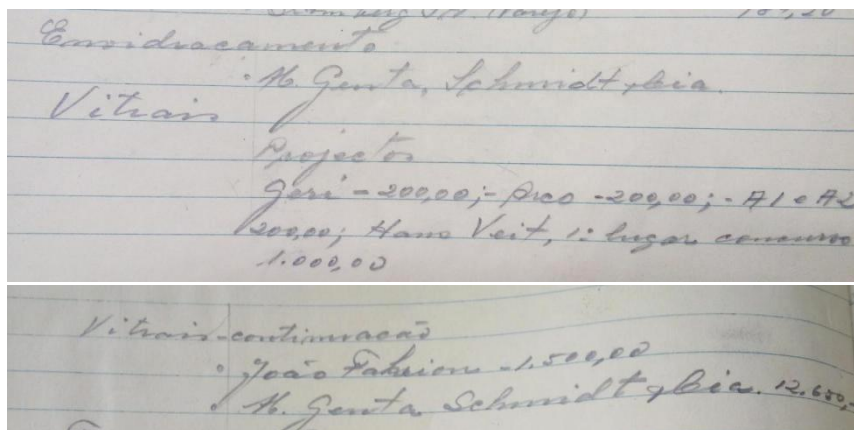 Envidraçamento
. M. Genta, Schmidt, & Cia.
Vitrais
Projectos
Geri - 200,00; - Arco - 200,00; - A1 e A2
200,00; Hans Veit, 1º lugar concurso
1.000,00
Vitrais - continuação
. João Fahrion - 1.500,00
. M. Genta Schmidt & Cia. 12.650,-